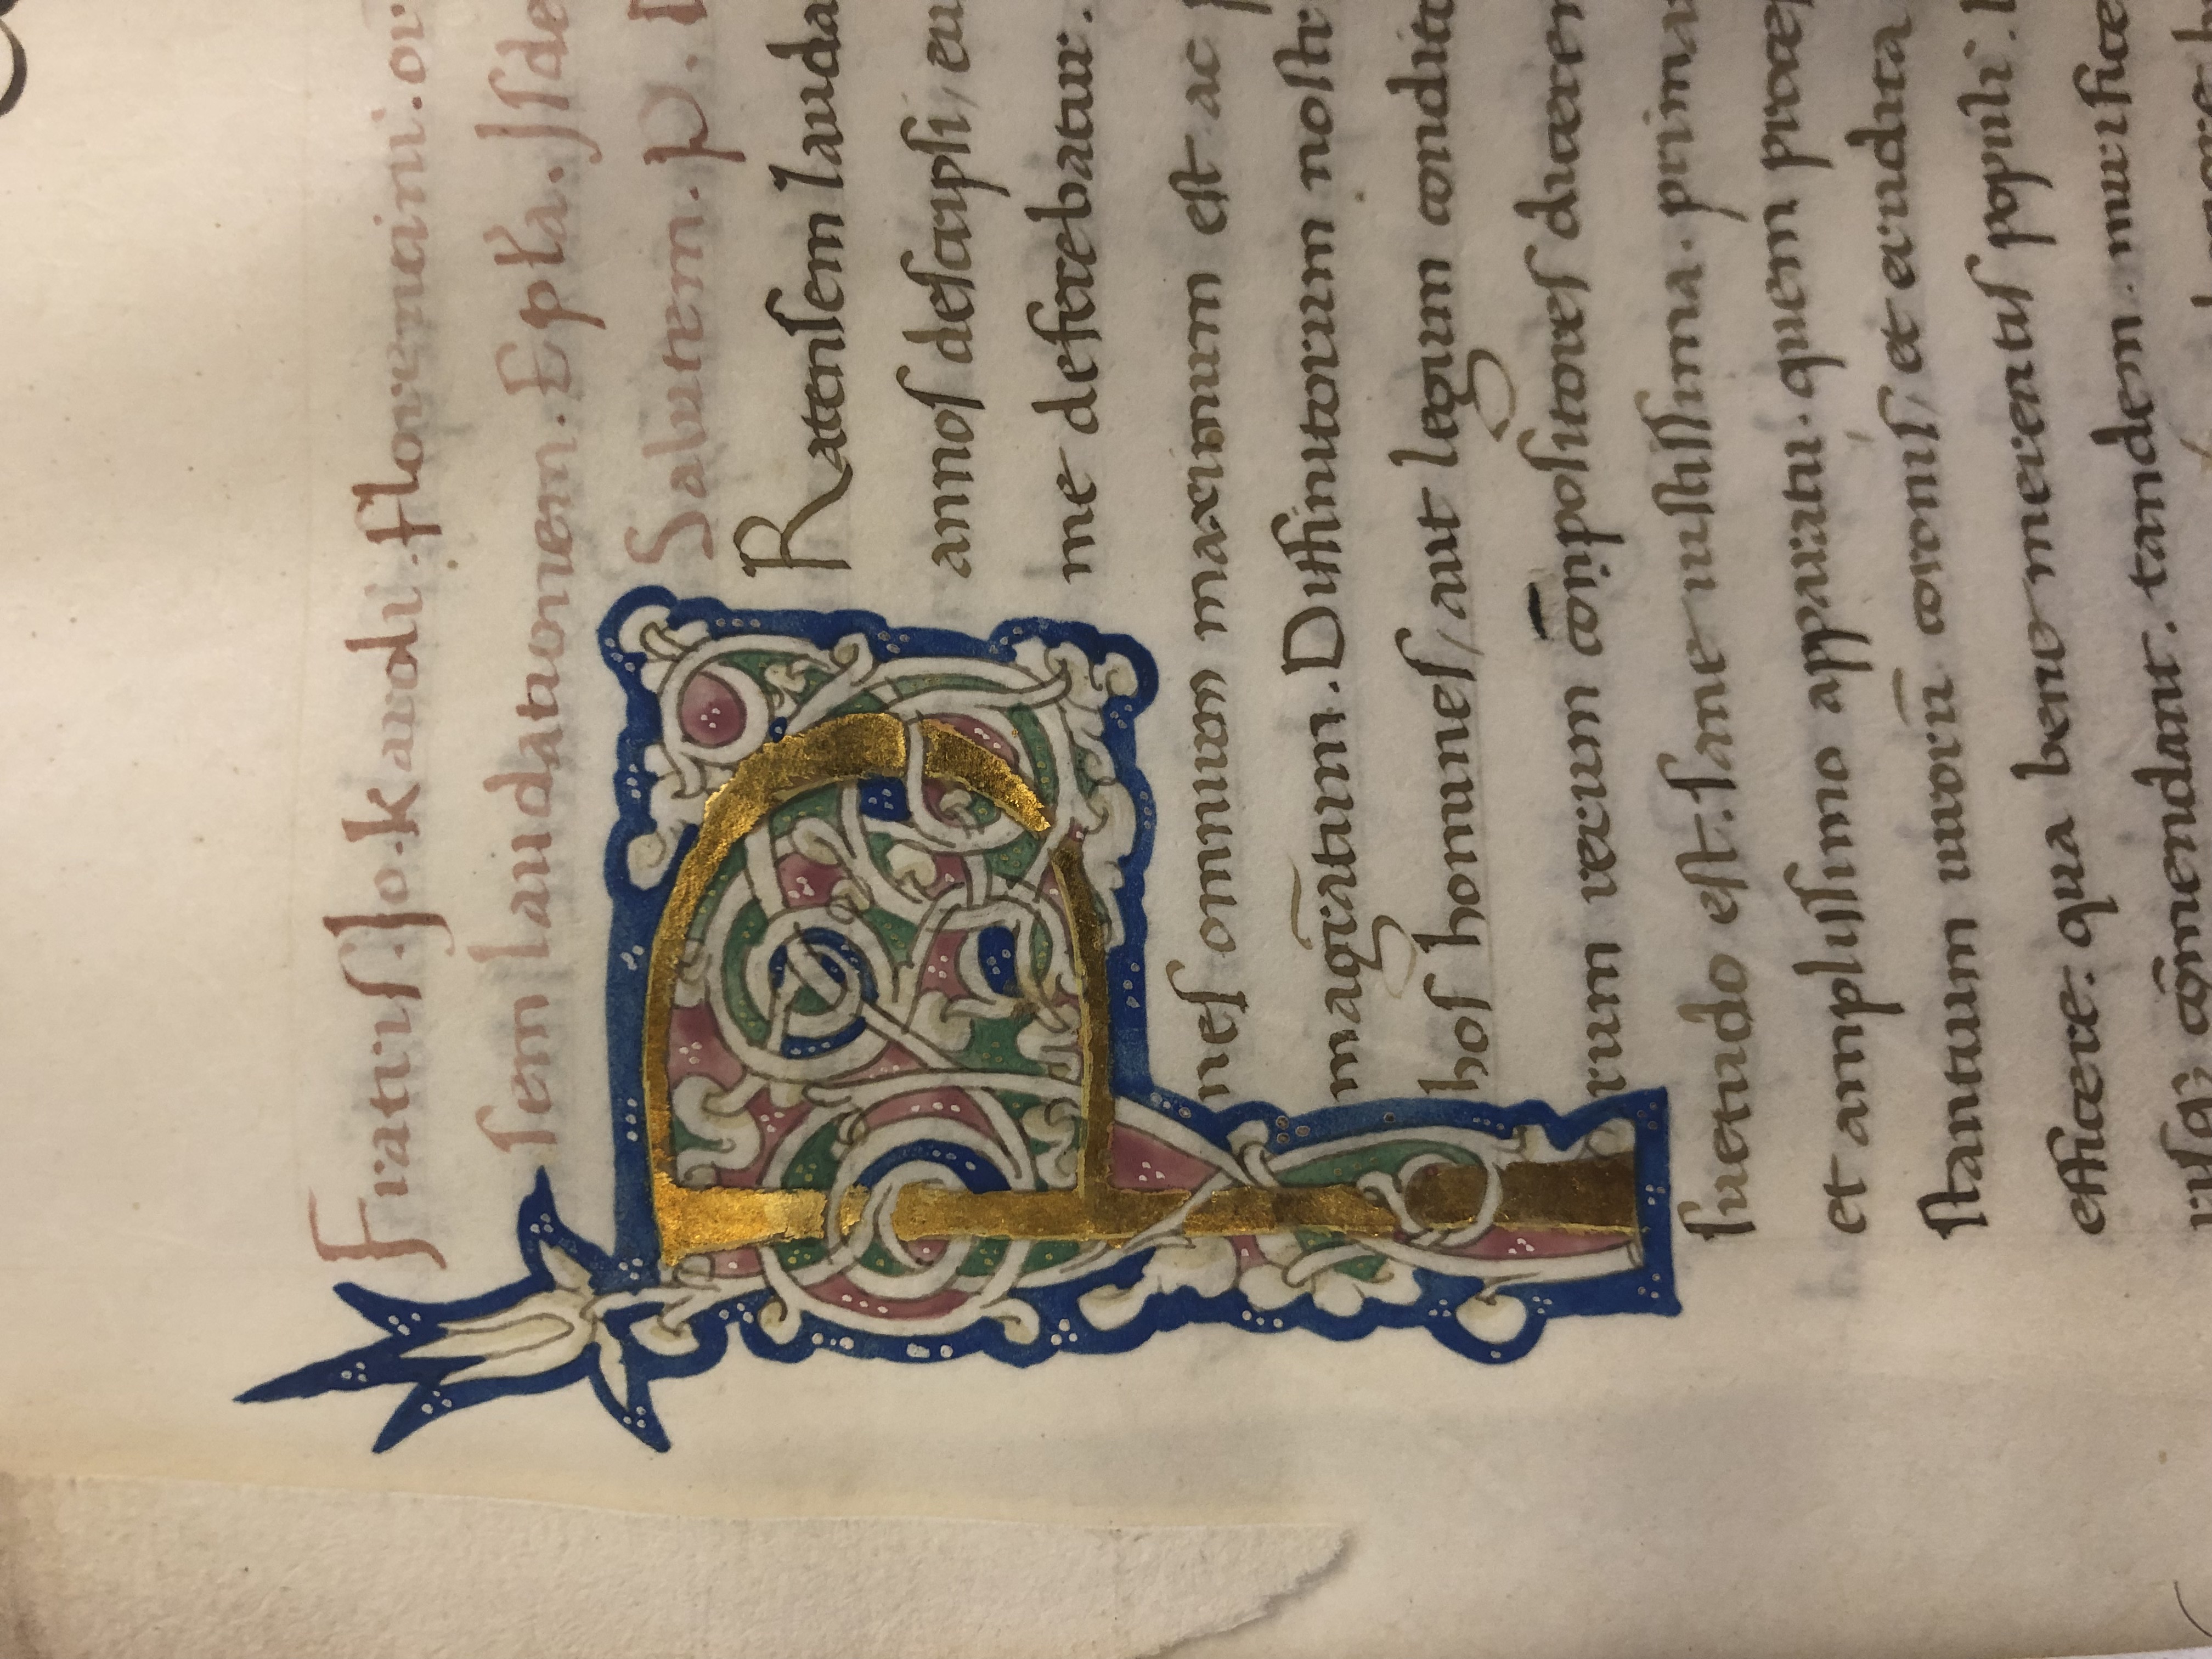 Fratriſ. Io. florentini. or
ſem laudationem. Epl̄a.
Salutem. p. D
PRatenſem lauda
annoſ deſcripſi, cu
me deferebatur.
neſ omnium maximum eſt ac p
magr̄atum. Diffinitorum noſtr
hoſ homineſ, aut legum condito
rum rerum cōnpoſitoreſ ducerem
ſuetudo eſt: ſane iuſtiſſima. prima
et ampliſſimo apparatu. quem proceſ
ſtantium uirorū coroniſ, et erudita
efficere: qua bene populi.
cōmendant. tandem. munifice